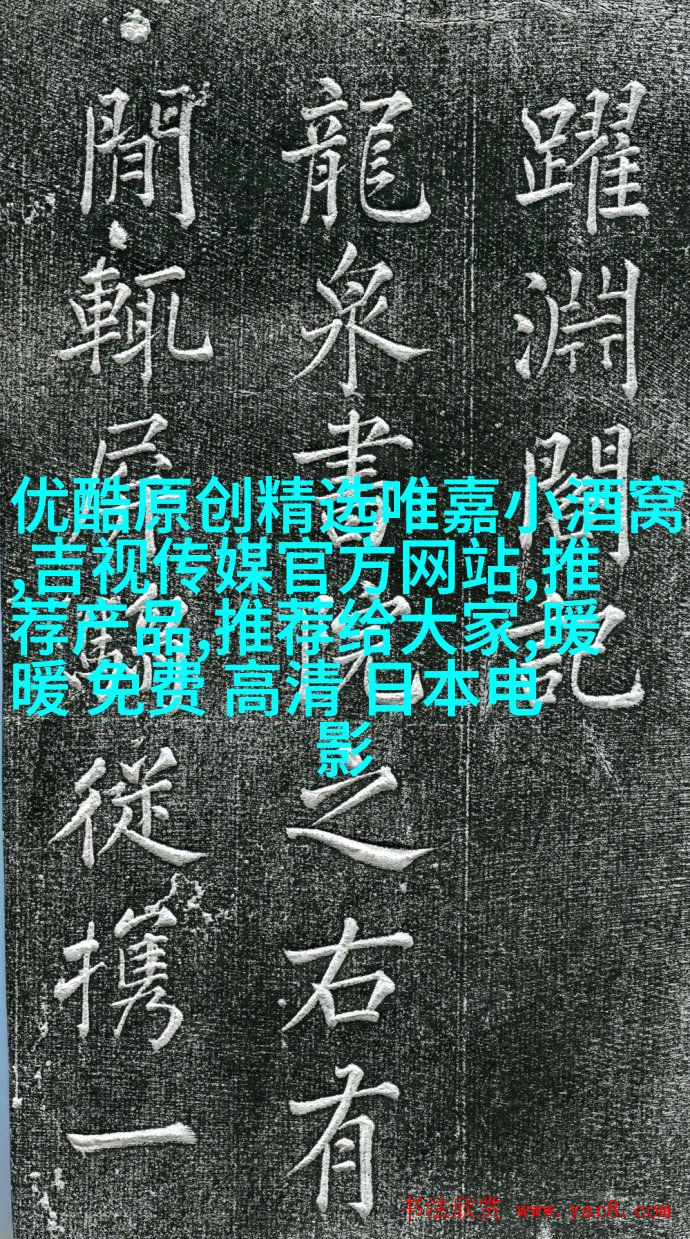 躍淵閣記
龍泉書院之右有
閒輒屏從攜一
优酷原创精选唯嘉小酒窝
,吉视传媒官方网站,推
荐产品,推荐给大家,暖
暖 免费 高清 日本电
影
书法欣赏 www.yac8.com